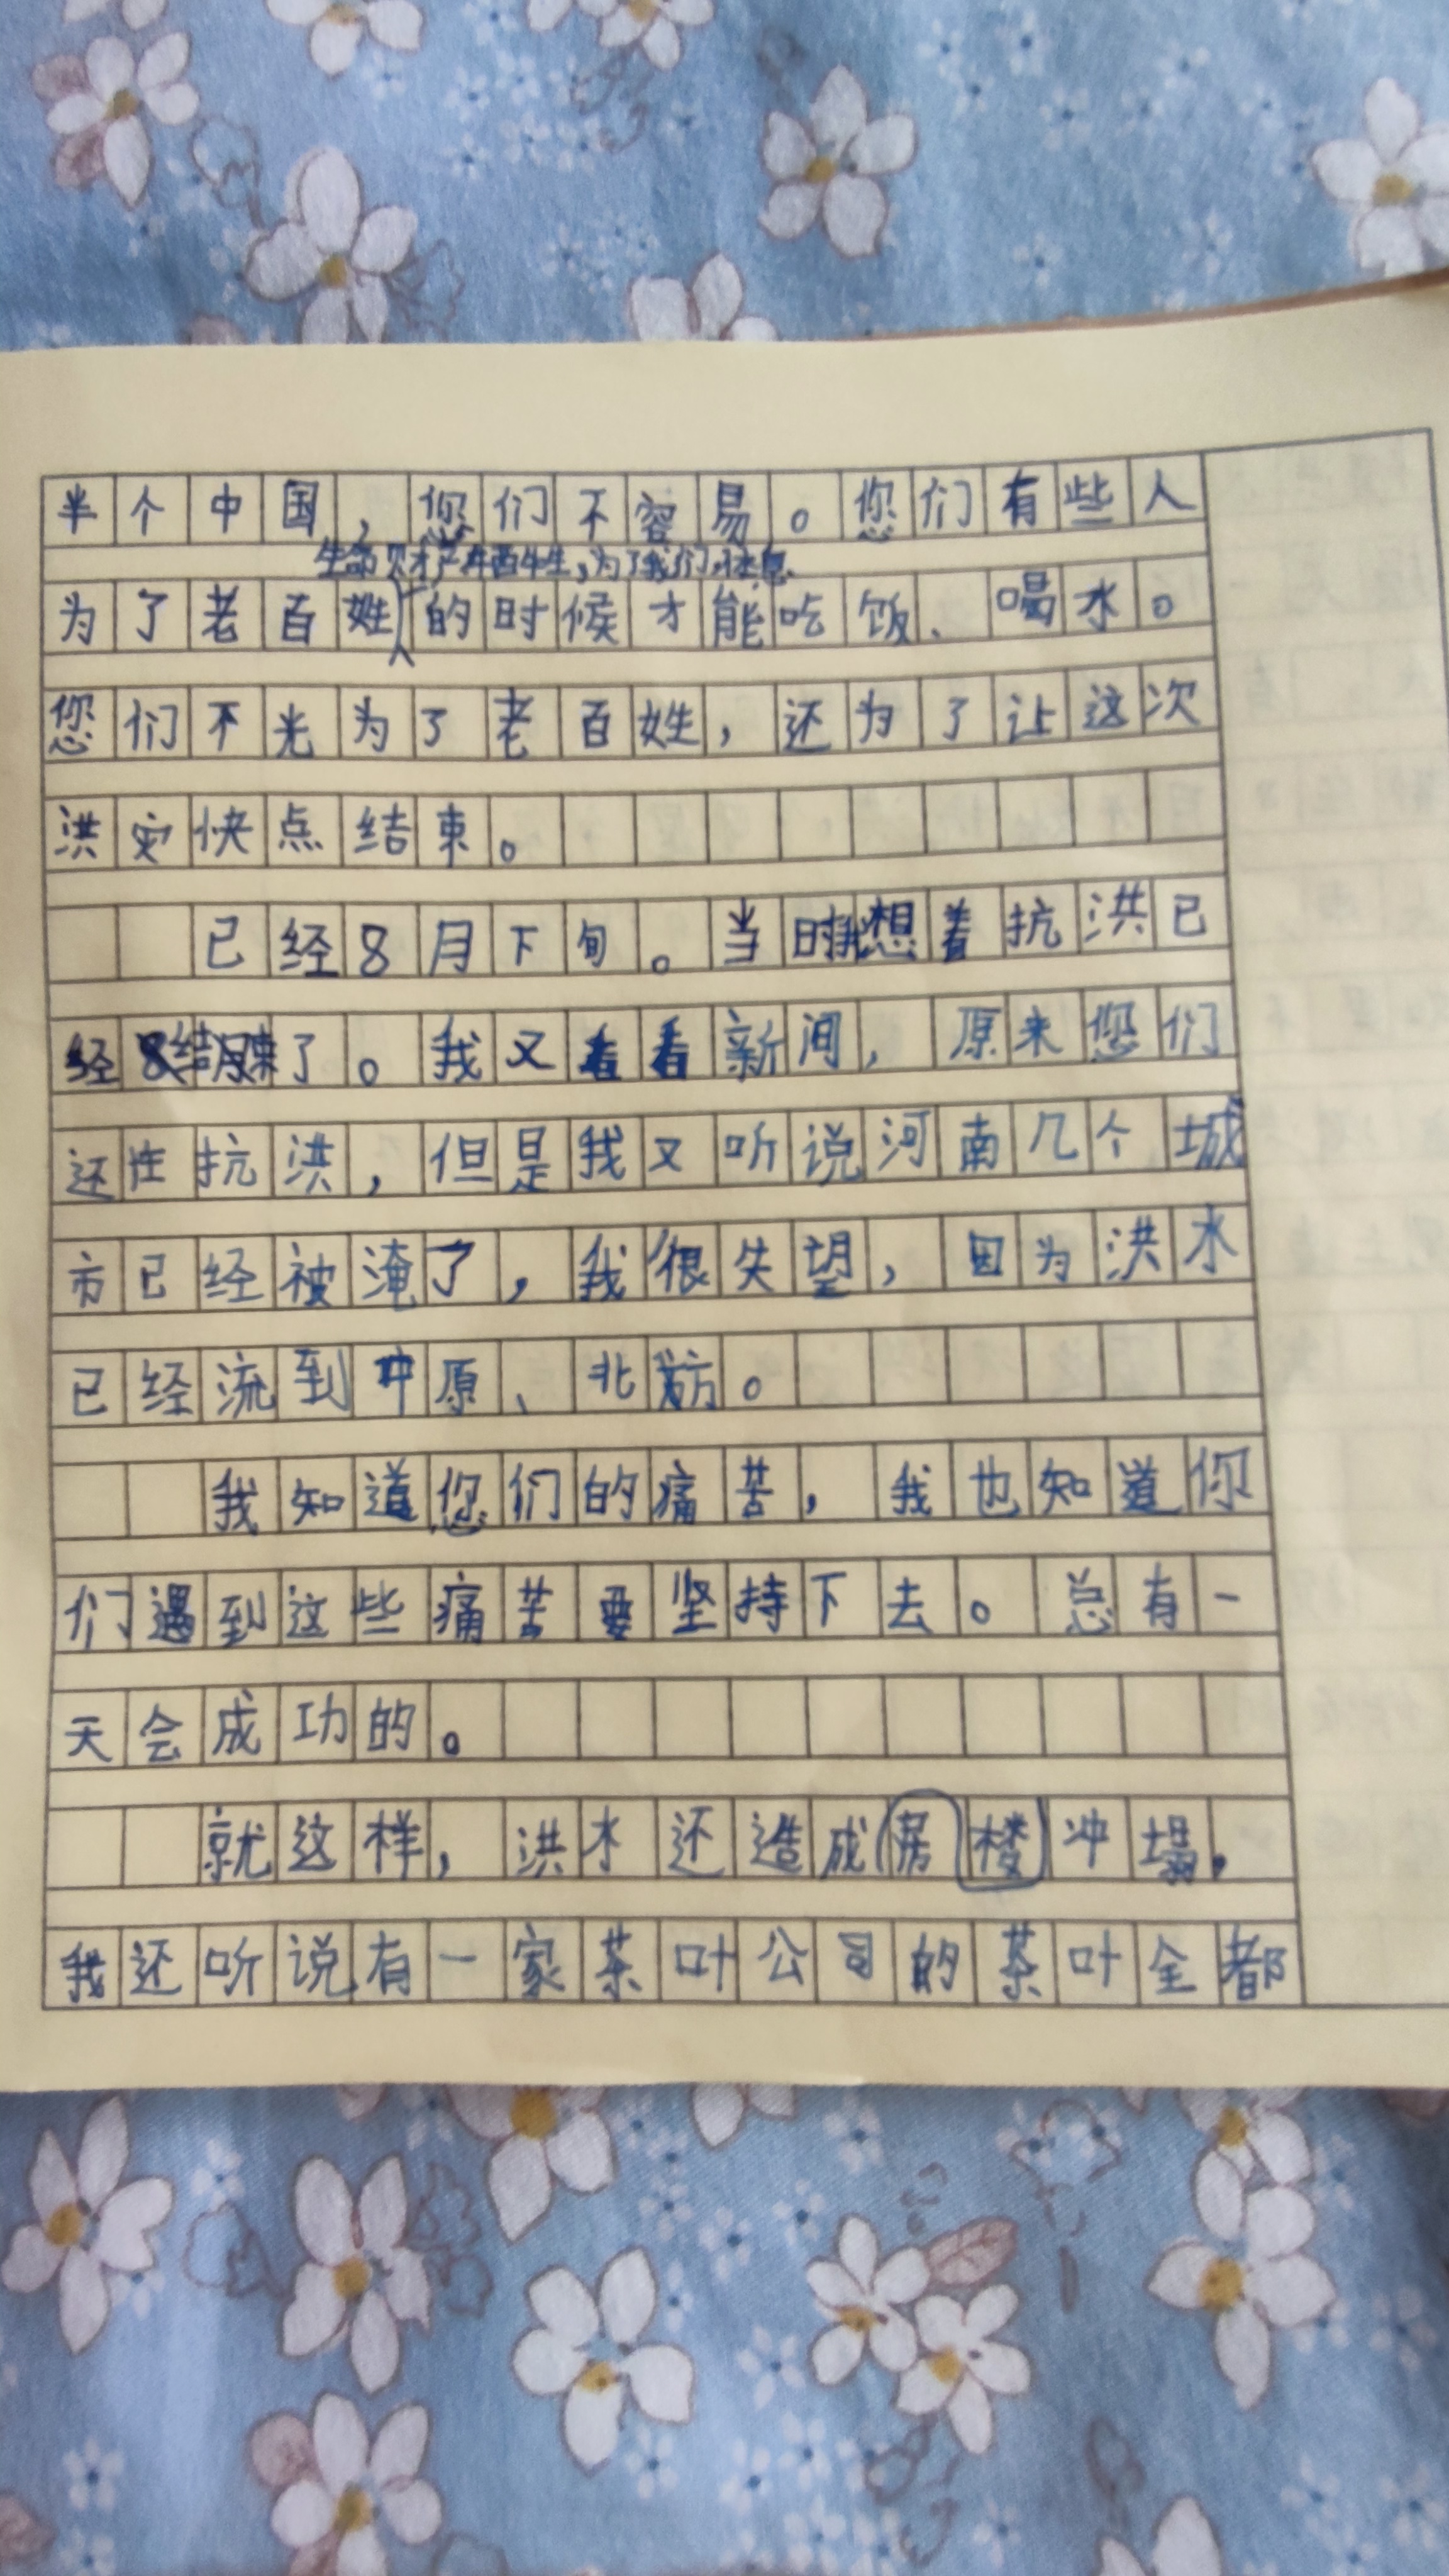 半个中国，您们不容易。您们有些人
生命财产牺牲，为了我们，休息
为了老百姓的时候才能吃饭、喝水。
您们不光为了老百姓，还为了让这次
洪灾快点结束。
已经8月下旬。当时我想着抗洪已
经结束了。我又看看新闻，原来您们
还在抗洪，但是我又听说河南几个城
市已经被淹了，我很失望，因为洪水
已经流到中原、北方。
我知道您们的痛苦，我也知道你
们遇到这些痛苦要坚持下去。总有一
天会成功的。
就这样，洪水还造成房楼冲塌，
我还听说有一家茶叶公司的茶叶全都